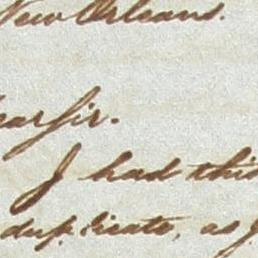 New Orleans.
ear Sir.
I had this
duplicate, as